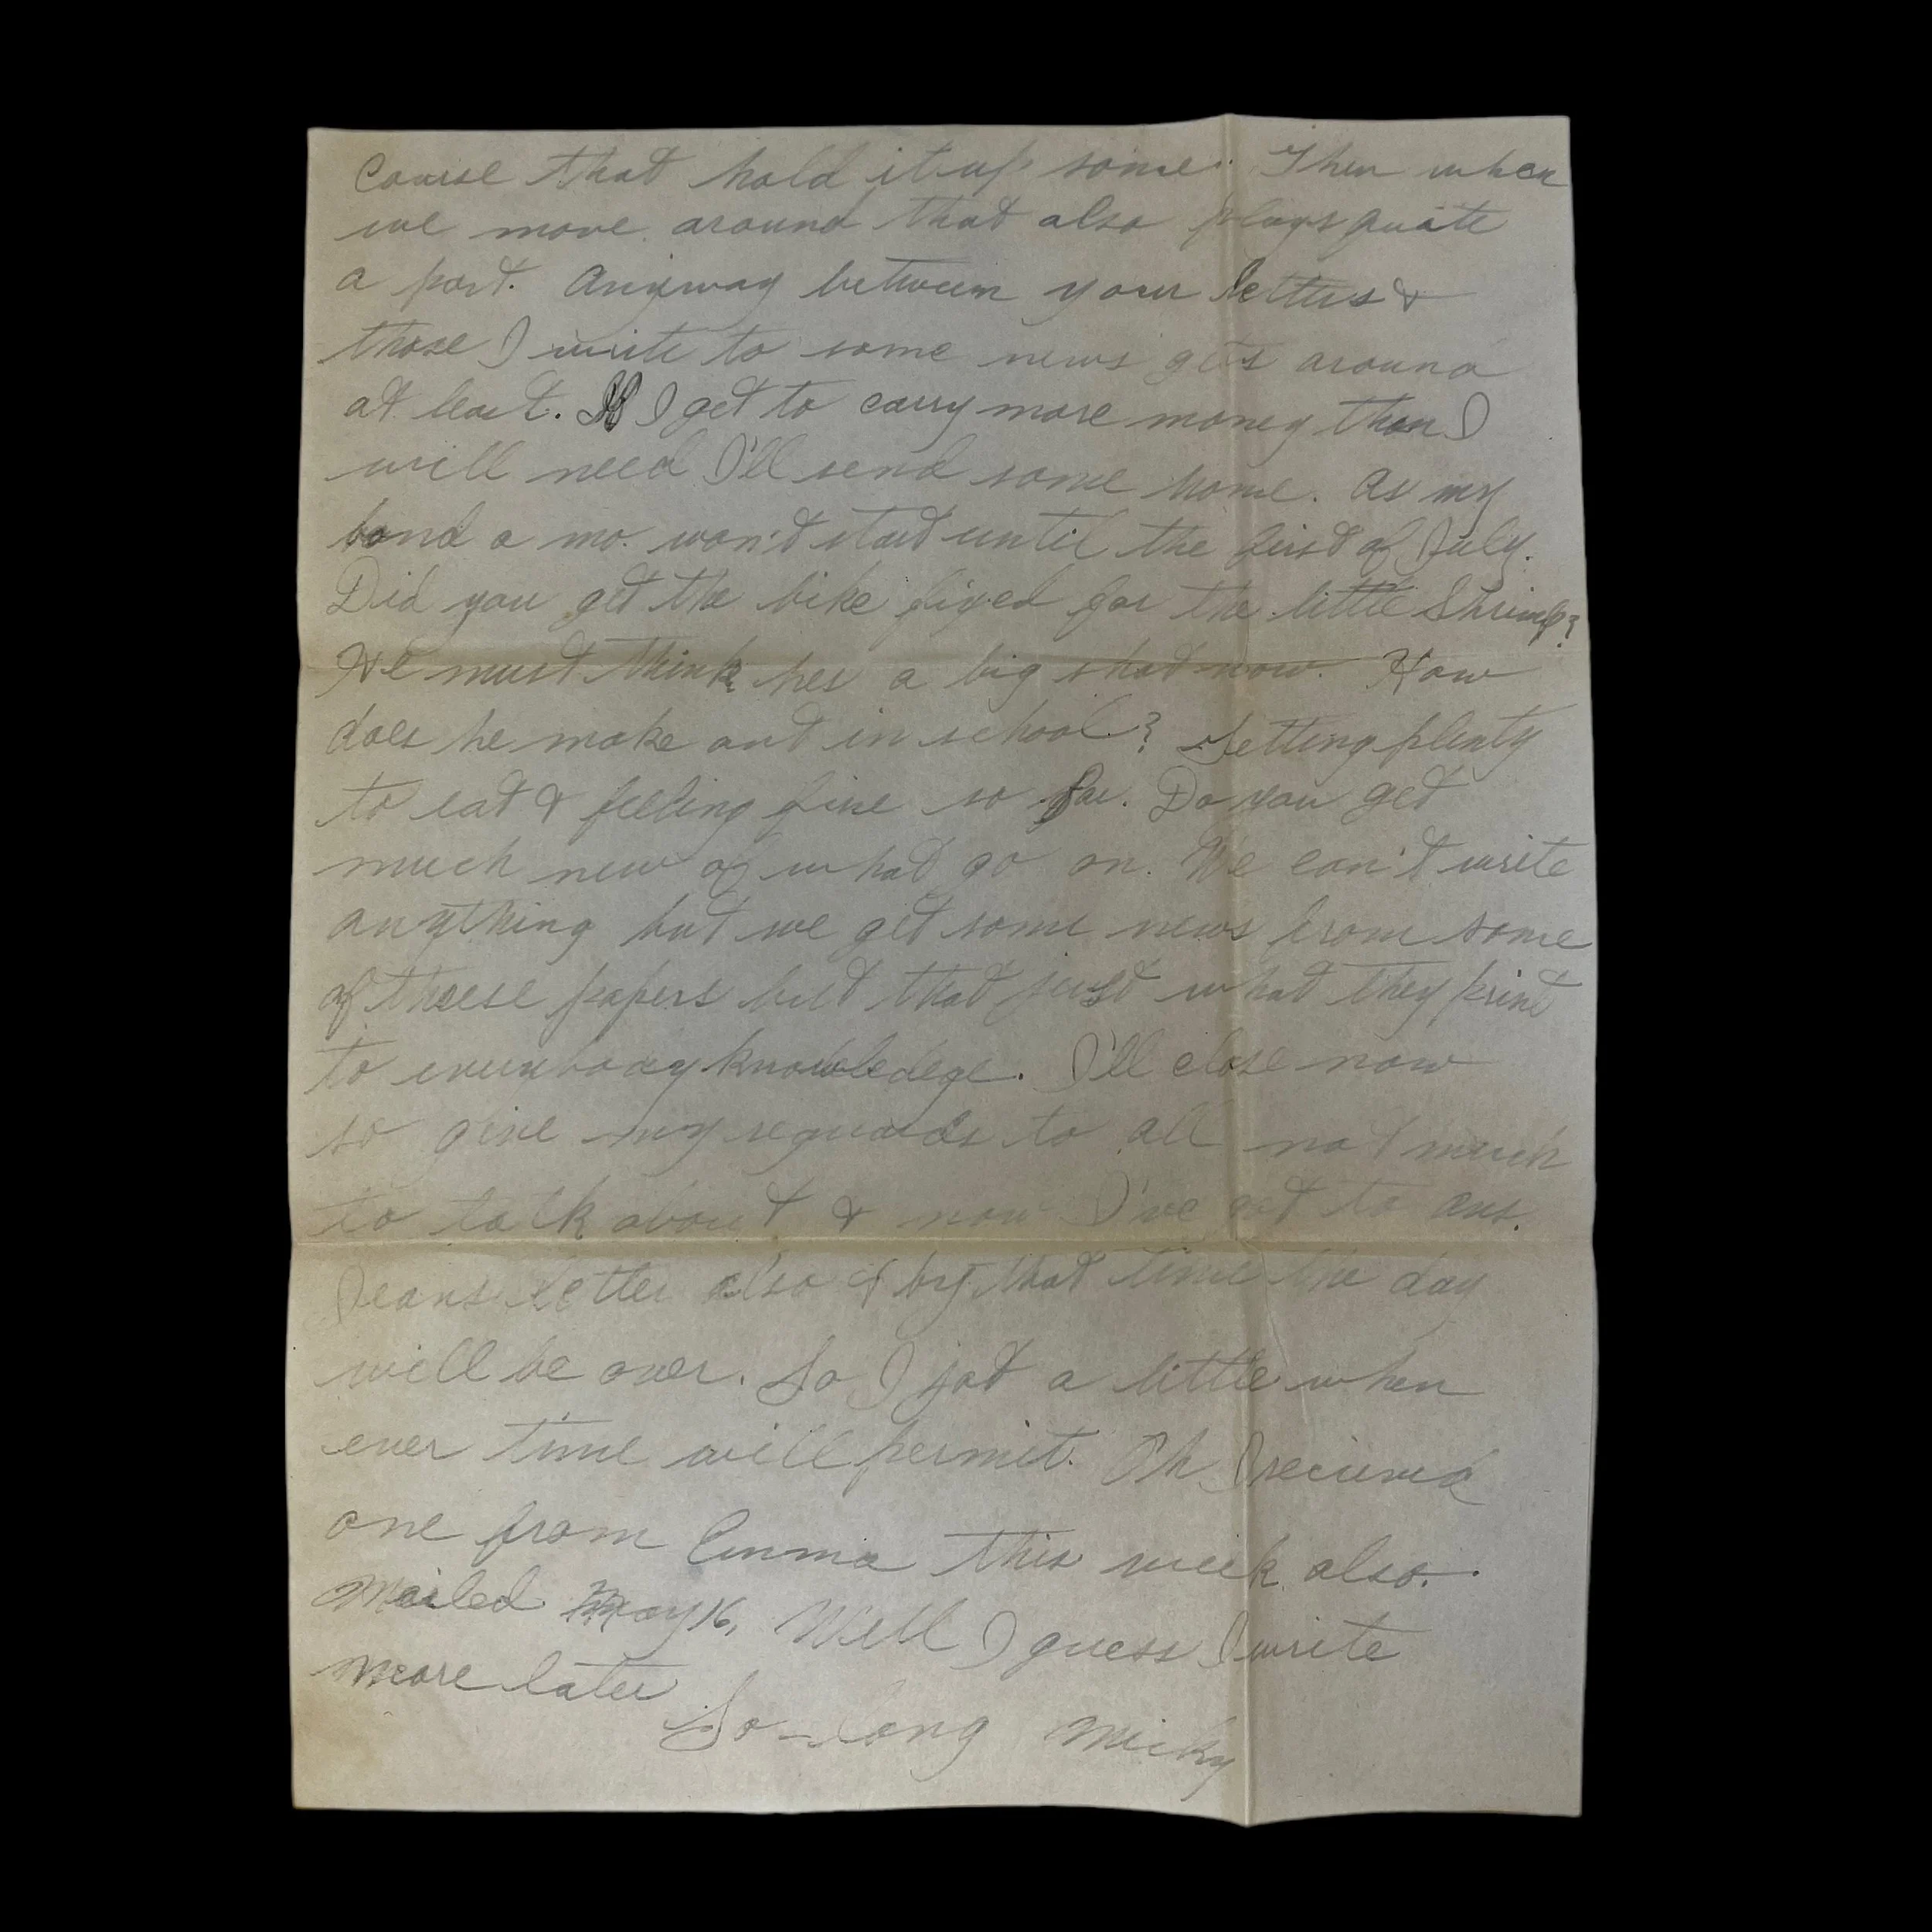 Course that hold it up some. Then when
we move around that also plays quite
a part. Anyway between your letters &
those I write to some news gets around
at least. If I get to carry more money than I
will need I'll send some home. As my
bond a mo. won't start until the first of July.
Did you get the bike fixed for the little Shrimp?
He must think hes a big shot now. How
does he make out in school? Getting plenty
to eat & feeling fine so far. Do you get
much new of what go on. We can't write
anything but we get some news from some
of theese papers but that just what they print
to everybody knowledege. I'll close now
so give my reguards to all not much
to talk about & now I've got to ans.
Jeans letter also & by that time the day
will be over. So I jot a little when
ever time will permit. Oh I recieved
one from Emma this week also.
Mailed May 16, Well I guess I write
more later
So-long Micky